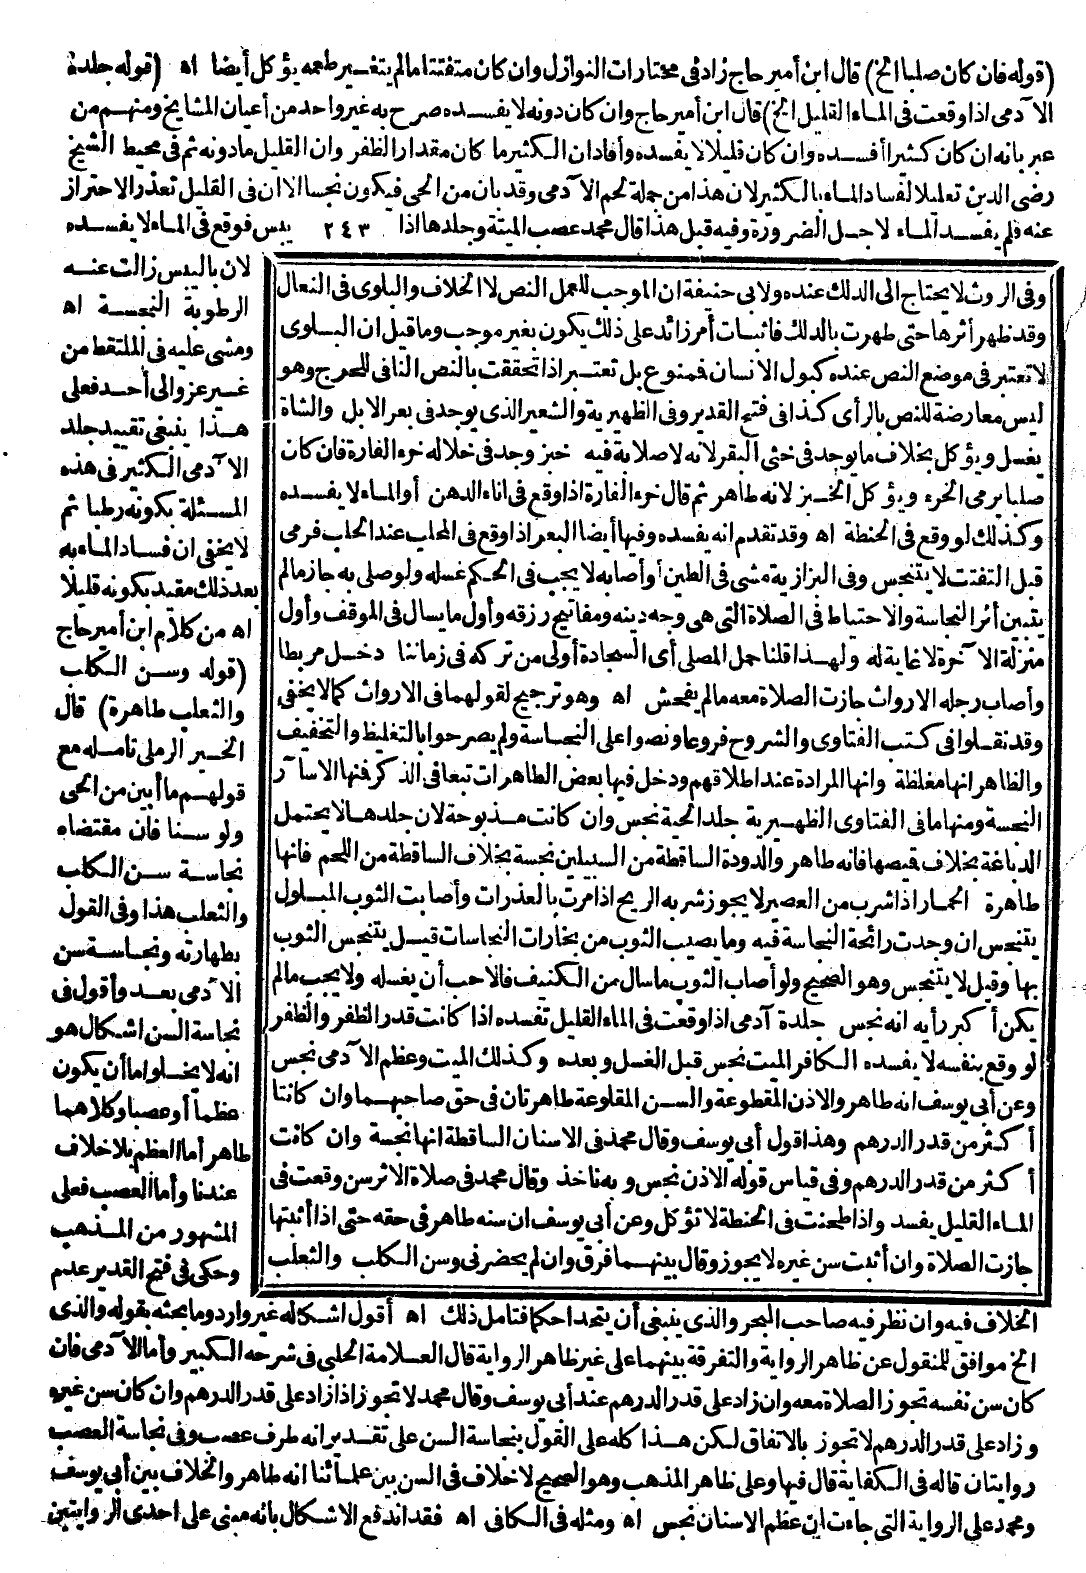 (قوله فان كان صلبا الخ) قال ابن أمير حاج زاد فى مختارات النوازل وان كان متفتتا ما لم يتغير طعمه يؤكل أيضا اه (قوله جلدة
الآدمى اذا وقعت فى الماء القليل الخ) قال ابن أمير حاج وان كان دونه لا يفسده صرح به غير واحد من أعيان المشايخ ومنهم من
عبر بانه ان كان كثيرا أفسده وان كان قليلا لا يفسده وأفاد ان الكثير ما كان مقدار الظفر وان القليل ما دونه ثم فى محيط الشيخ
رضى الدين تعليلا لفساد الماء بالكثير لان هذا من جملة لحم الآدمى وقد بان من الحى فيكون نجسا الا ان فى القليل تعذر الاحتراز
عنه فلم يفسد الماء لاجل الضرورة وفيه قبل هذا قال محمد عصب الميتة وجلدها اذا ٢٤٣ يبس فوقع فى الماء لا يفسده
لان باليبس زالت عنه
الرطوبة النجسة اه
ومشى عليه فى الملتقط من
غير عزو الى أحد فعلى
هذا ينبغى تقييد جلد
الآدمى الكثير فى هذه
المسئلة بكونه رطبا ثم
لا يخفى ان فساد الماء به
بعد ذلك مقيد بكونه قليلا
اه من كلام ابن أمير حاج
(قوله وسن الكلب
والثعلب طاهرة) قال
الخير الرملى تامله مع
قولهم ما أبين من الحى
ولو سنا فان مقتضاه
نجاسة سن الكلب
والثعلب هذا وفى القول
بطهارته ونجاسة سن
الآدمى بعد وأقول فى
نجاسة السن اشكال هو
انه لا يخلو اما أن يكون
عظما أو عصبا وكلاهما
طاهر أما العظم بلا خلاف
عندنا وأما العصب فعلى
المشهور من المذهب
وحكى فى فتح القدير عدم
وفى الروث لا يحتاج الى الدلك عنده ولابى حنيفة ان الموجب للعمل النص لا الخلاف والبلوى فى النعال
وقد ظهر أثرها حتى طهرت بالدلك فاثبات أمر زائد على ذلك يكون بغير موجب وما قيل ان البلوى
لا تعتبر فى موضع النص عنده كبول الانسان فممنوع بل تعتبر اذا تحققت بالنص النافى للحرج وهو
ليس معارضة للنص بالرأى كذا فى فتح القدير وفى الظهيرية والشعير الذى يوجد فى بعر الابل والشاة
يغسل ويؤكل بخلاف ما يوجد فى خثى البقر لانه لا صلابة فيه خبز وجد فى خلاله خرء الفارة فان كان
صلبا يرمى الخرء ويؤكل الخبز لانه طاهر ثم قال خرء الفارة اذا وقع فى اناء الدهن أو الماء لا يفسده
وكذلك لو وقع فى الحنطة اه وقد تقدم انه يفسده وفيها أيضا البعر اذا وقع فى المحلب عند الحلب فرمى
قبل التفتت لا يتنجس وفى البزازية مشى فى الطين أو أصابه لا يجب فى الحكم غسله ولو صلى به جاز ما لم
يتبين أثر النجاسة والاحتياط فى الصلاة التى هى وجه دينه ومفاتيح رزقه وأول ما يسال فى الموقف وأول
منزلة الآخرة لا غاية له ولهذا قلنا حمل المصلى أى السجادة أولى من تركه فى زماننا دخل مربطا
وأصاب رجله الارواث جازت الصلاة معه ما لم يفحش اه وهو ترجيح لقولهما فى الارواث كما لا يخفى
وقد نقلوا فى كتب الفتاوى والشروح فروعا ونصوا على النجاسة ولم يصرحوا بالتغليظ والتخفيف
والظاهر انها مغلظة وانها المرادة عند اطلاقهم ودخل فيها بعض الطاهرات تبعا فى الذكر فمنها الاسآر
النجسة ومنها ما فى الفتاوى الظهيرية جلد الحية نجس وان كانت مذبوحة لان جلدها لا يحتمل
الدباغة بخلاف قيصها فانه طاهر والدودة الساقطة من السبيلين نجسة بخلاف الساقطة من اللحم فانها
طاهرة الحمار اذا شرب من العصير لا يجوز شربه الريح اذا مرت بالعذرات وأصابت الثوب المبلول
يتنجس ان وجدت رائحة النجاسة فيه وما يصيب الثوب من بخارات النجاسات قيل يتنجس الثوب
بها وقيل لا يتنجس وهو الصحيح ولو أصاب الثوب ما سال من الكنيف فالاحب أن يغسله ولا يجب ما لم
يكن أكبر رأيه انه نجس جلدة آدمى اذا وقعت فى الماء القليل تفسده اذا كانت قدر الظفر والظفر
لو وقع بنفسه لا يفسده الكافر الميت نجس قبل الغسل وبعده وكذلك الميت وعظم الآدمى نجس
وعن أبى يوسف انه طاهر والاذن المقطوعة والسن المقلوعة طاهرتان فى حق صاحبهما وان كانتا
أكثر من قدر الدرهم وهذا قول أبى يوسف وقال محمد فى الاسنان الساقطة انها نجسة وان كانت
أكثر من قدر الدرهم وفى قياس قوله الاذن نجس وبه ناخذ وقال محمد فى صلاة الاثر سن وقعت فى
الماء القليل يفسد واذا طحنت فى الحنطة لا تؤكل وعن أبى يوسف ان سنه طاهر فى حقه حتى اذا أثبتها
جازت الصلاة وان أثبت سن غيره لا يجوز وقال بينهما فرق وان لم يحضرنى وسن الكلب والثعلب
الخلاف فيه وان نظر فيه صاحب البحر والذى ينبغى أن يتحدا حكما فتامل ذلك اه أقول اشكاله غير وارد وما بحثه بقوله والذى
الخ موافق للمنقول عن ظاهر الرواية والتفرقة بينهما على غير ظاهر الرواية قال العلامة الحلبى فى شرحه الكبير وأما الآدمى فان
كان سن نفسه تجوز الصلاة معه وان زاد على قدر الدرهم عند أبى يوسف وقال محمد لا تجوز اذا زاد على قدر الدرهم وان كان سن غيره
وزاد على قدر الدرهم لا تجوز بالاتفاق لكن هذا كله على القول بنجاسة السن على تقدير انه طرف عصب وفى نجاسة العصب
روايتان قاله فى الكفاية قال فيها وعلى ظاهر المذهب وهو الصحيح لا خلاف فى السن بين علمائنا انه طاهر والخلاف بين أبى يوسف
ومحمد على الرواية التى جاءت ان عظم الاسنان نجس اه ومثله فى الكافى اه فقد اندفع الاشكال بانه مبنى على احدى الروايتين